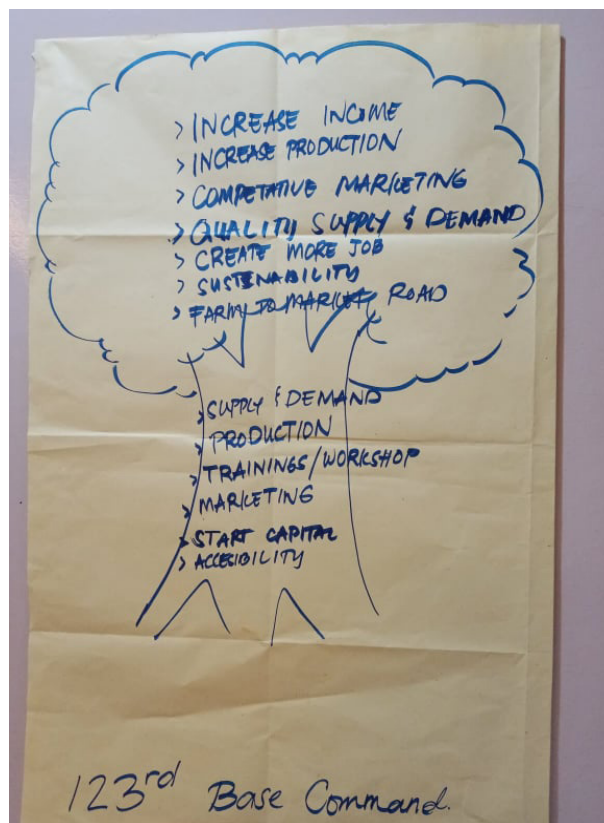 > INCREASE INCOME
> INCREASE PRODUCTION
> COMPETATIVE MARKETING
> QUALITY SUPPLY & DEMAND
> CREATE MORE JOB
> SUSTENABILITY
> FARM TO MARKET ROAD
> SUPPLY & DEMAND
> PRODUCTION
> TRAININGS/WORKSHOP
> MARKETING
> START CAPITAL
> ACCESIBILITY
123rd Base Command.